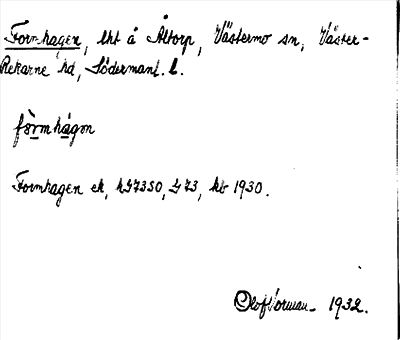 Formhagen, lht å Åltorp, Västermo sn, Väster-
Rekarne hd, Södermanl. l.
fòrmhágen
Formhagen ek, 473SO, 473, kb 1930.
Olof Vorman 1932.